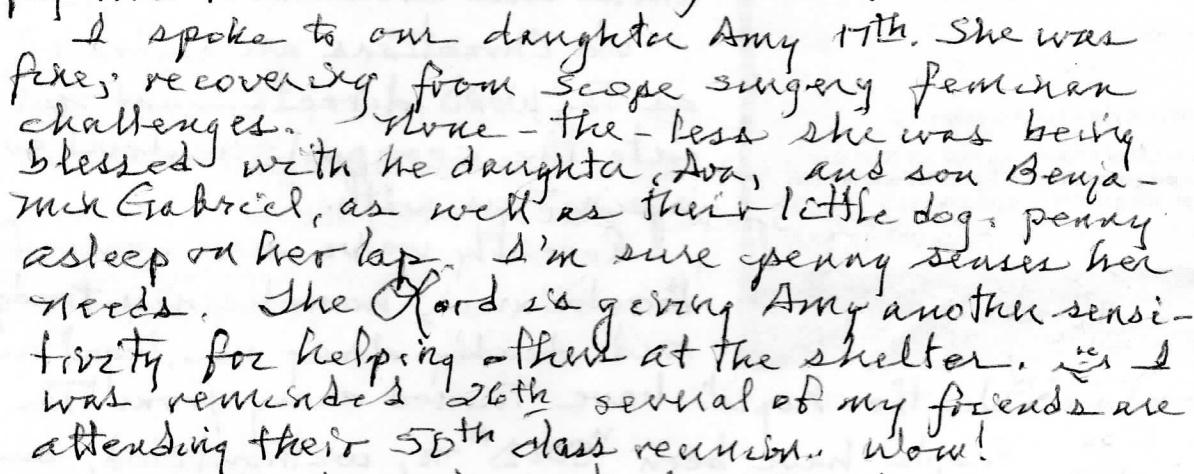 I spoke to our daughter Amy 17th. She was
fine; recovering from scope surgery feminan
challenges. None-the-less she was being
blessed with he daughter, Ava, and son Benja-
min Gabriel, as well as their little dog. penny
asleep on her lap. I'm sure penny senses her
needs. The Lord is giving Amy another sensi-
tivity for helping others at the shelter. I
was reminded 26th several of my friends are
attending their 50th class reunion. Wow!